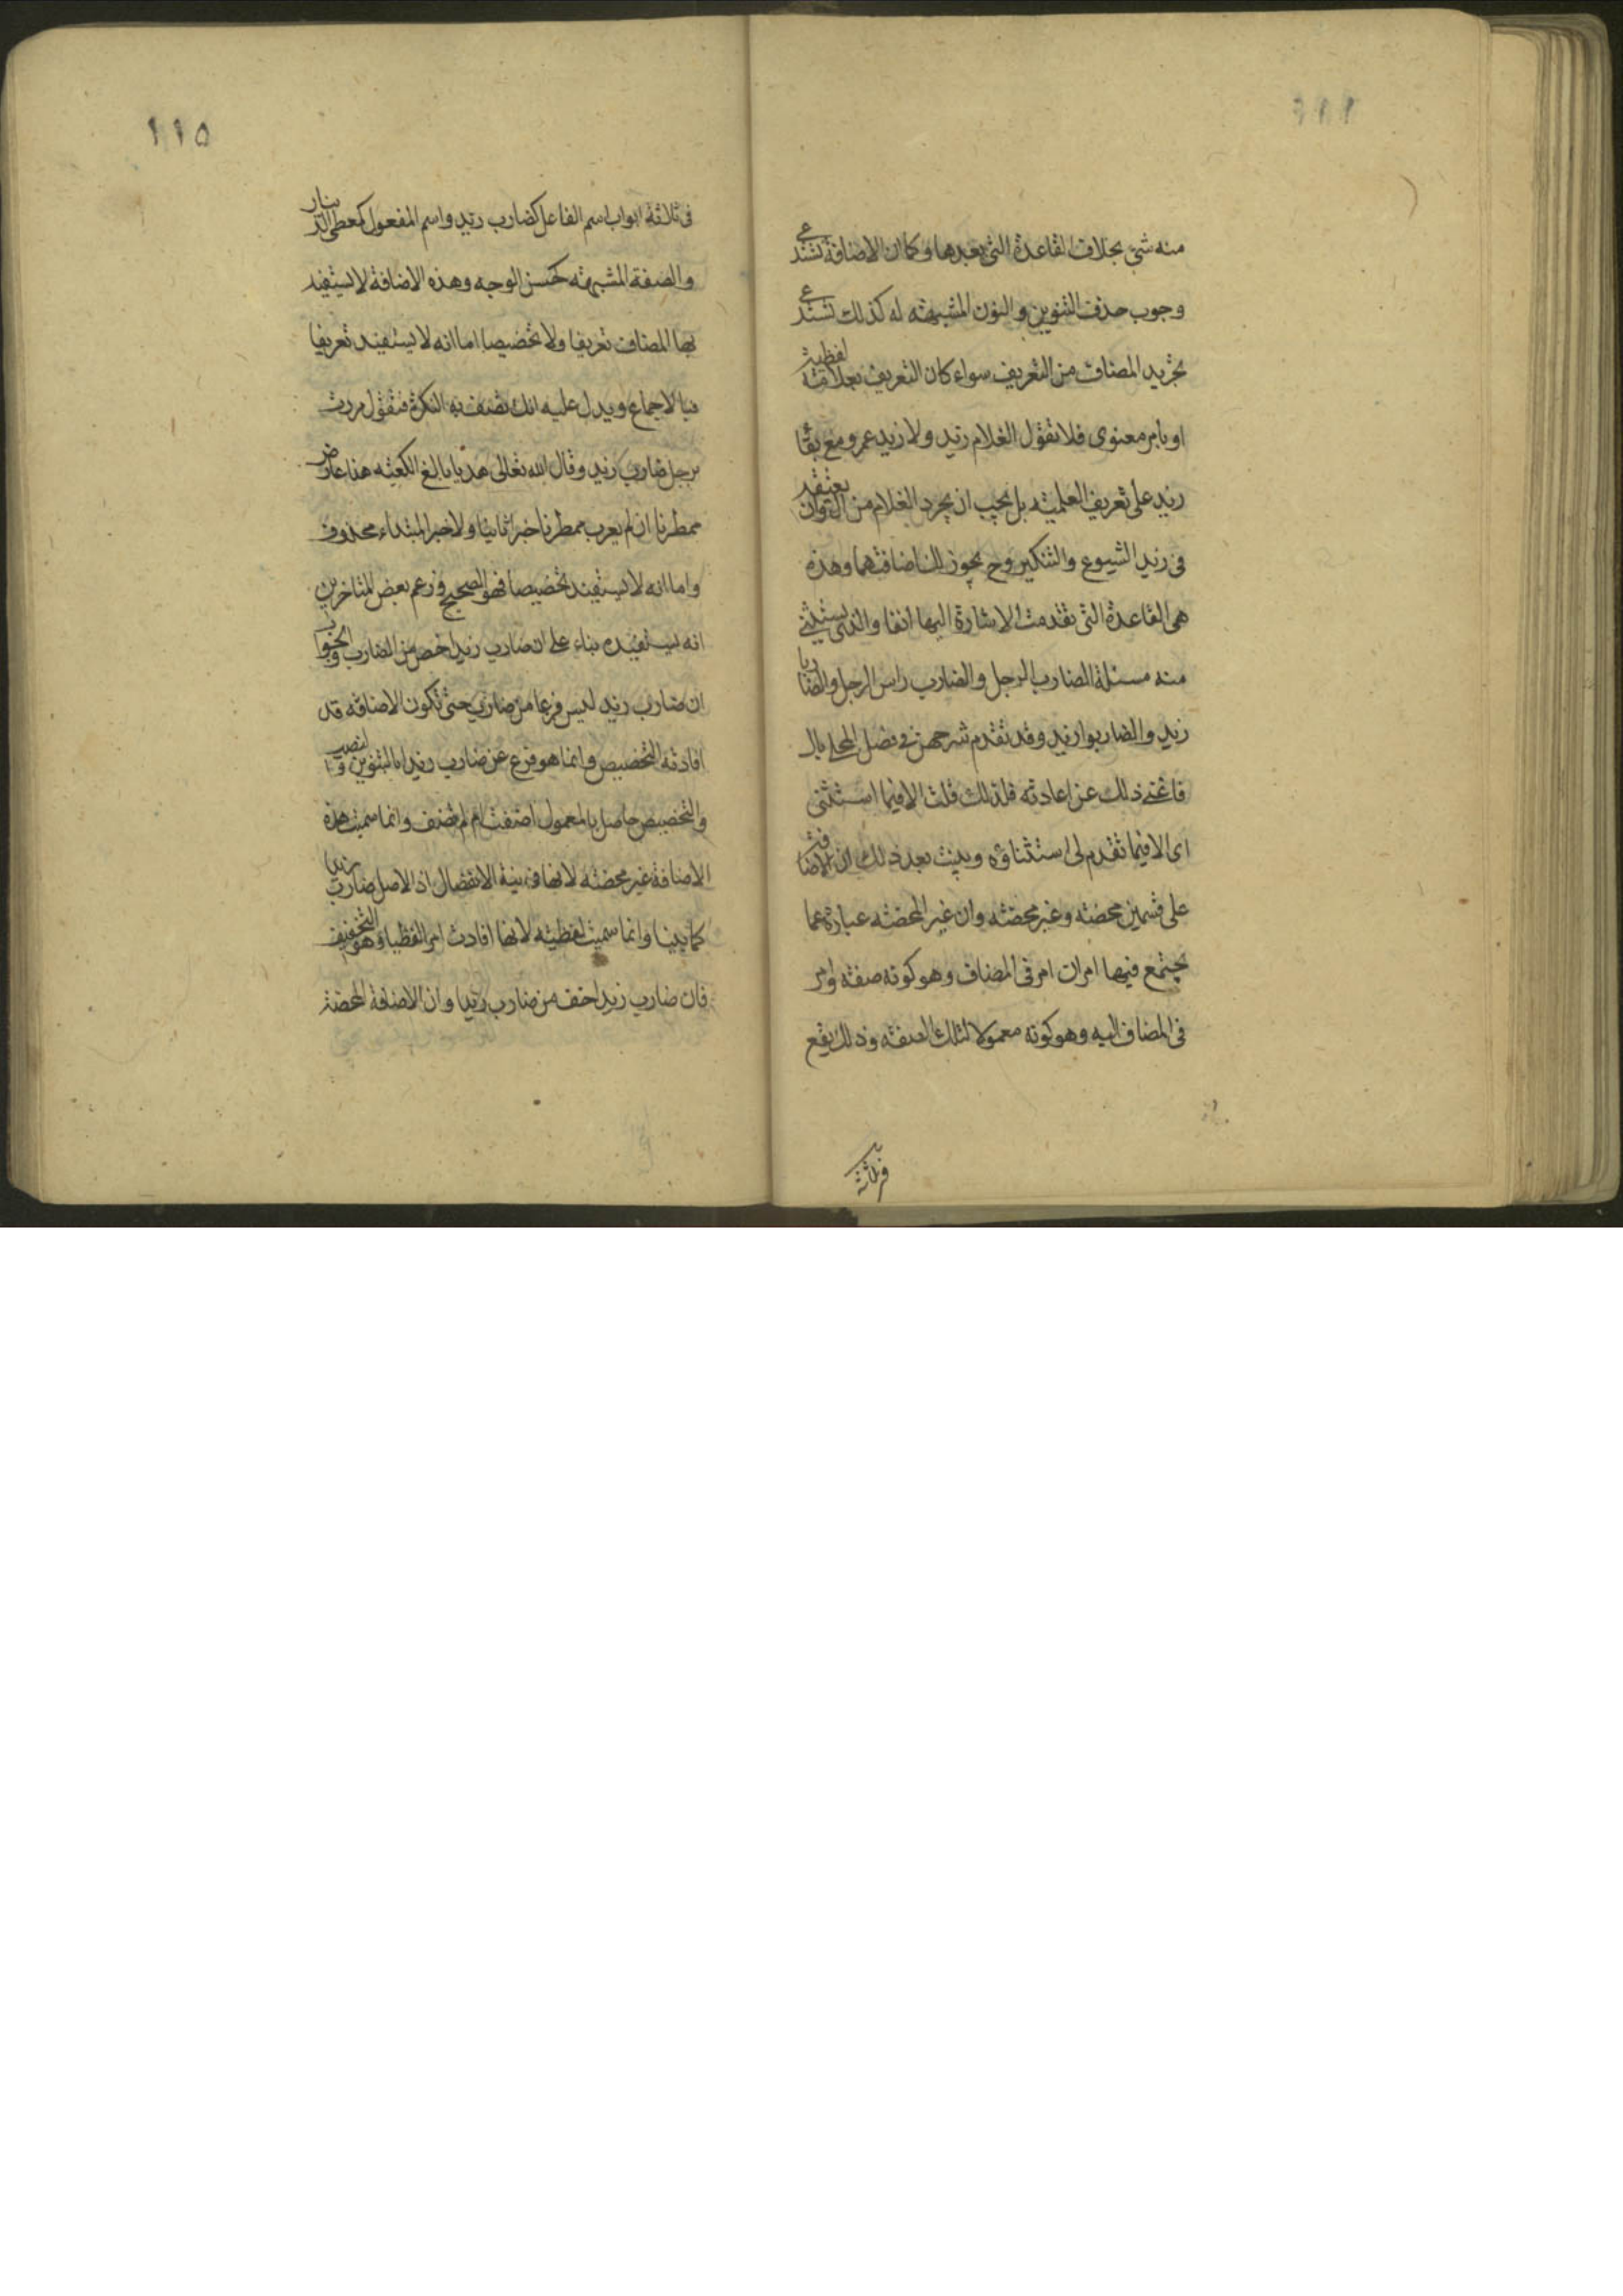 منه شئ بخلاف القاعدة التى بعدها وكما ان الاضافة تستدعى
وجوب حذف التنوين والنون المشبهة له كذلك تستدعى
تجريد المضاف من التعريف سواء كان التعريف بعلامة لفظية
او بامر معنوى فلا تقول الغلام زيد ولا زيد عمرو مع بقا
زيد على تعريف العلمية بل يجب ان يجرد الغلام من ال وان يعتقد
فى زيد الشيوع والتنكير وح يجوز لك اضافتهما وهذه
هى القاعدة التى تقدمت الاشارة اليها انفا والذى يستثنى
منه مسئلة الضارب الرجل والضارب راس الرجل والضاربا
زيد والضاربوا زيد وقد تقدم شرحهن فى فصل المحلى بال
فاغنى ذلك عن اعادته فلذلك قلت الا فيما استثنى
اى الا فيما تقدم لى استثناؤه وبينت بعد ذلك ان الاضافة
على قسمين محضة وغير محضة وان غير المحضة عبارة عما
يجتمع فيها امران امر فى المضاف وهو كونه صفة وامر
فى المضاف اليه وهو كونه معمولا لتلك الصفة وذلك يقع
فى ثلاثة
١١٥
فى ثلاثة ابواب اسم الفاعل كضارب زيد واسم المفعول كمعطى الدينار
والصفة المشبهة كحسن الوجه وهذه الاضافة لا يستفيد
بها المضاف تعريفا ولا تخصيصا اما انه لا يستفيد تعريفا
فبالاجماع ويدل عليه انك تصف به النكرة فتقول مررت
برجل ضارب زيد وقال الله تعالى هديا بالغ الكعبة هذا عارض
ممطرنا ان لم يعرب ممطرنا خبرا ثانيا ولا خبرا لمبتداء محذوف
واما انه لا يستفيد تخصيصا فهو الصحيح وزعم بعض المتاخرين
انه يستفيده بناء على ان ضارب زيد اخص من الضارب والجواب
ان ضارب زيد ليس فرعا من ضارب حتى تكون الاضافة قد
افادته التخصيص وانما هو فرع عن ضارب زيدا بالتنوين والنصب
والتخصيص حاصل بالمعمول اضفت ام لم تضف وانما سميت هذه
الاضافة غير محضة لانها فى نية الانفصال اذ الاصل ضارب زيدا
كما بينا وانما سميت لفظية لانها افادت امرا لفظيا وهو التخفيف
فان ضارب زيد اخف من ضارب زيدا وان الاضافة المحضة